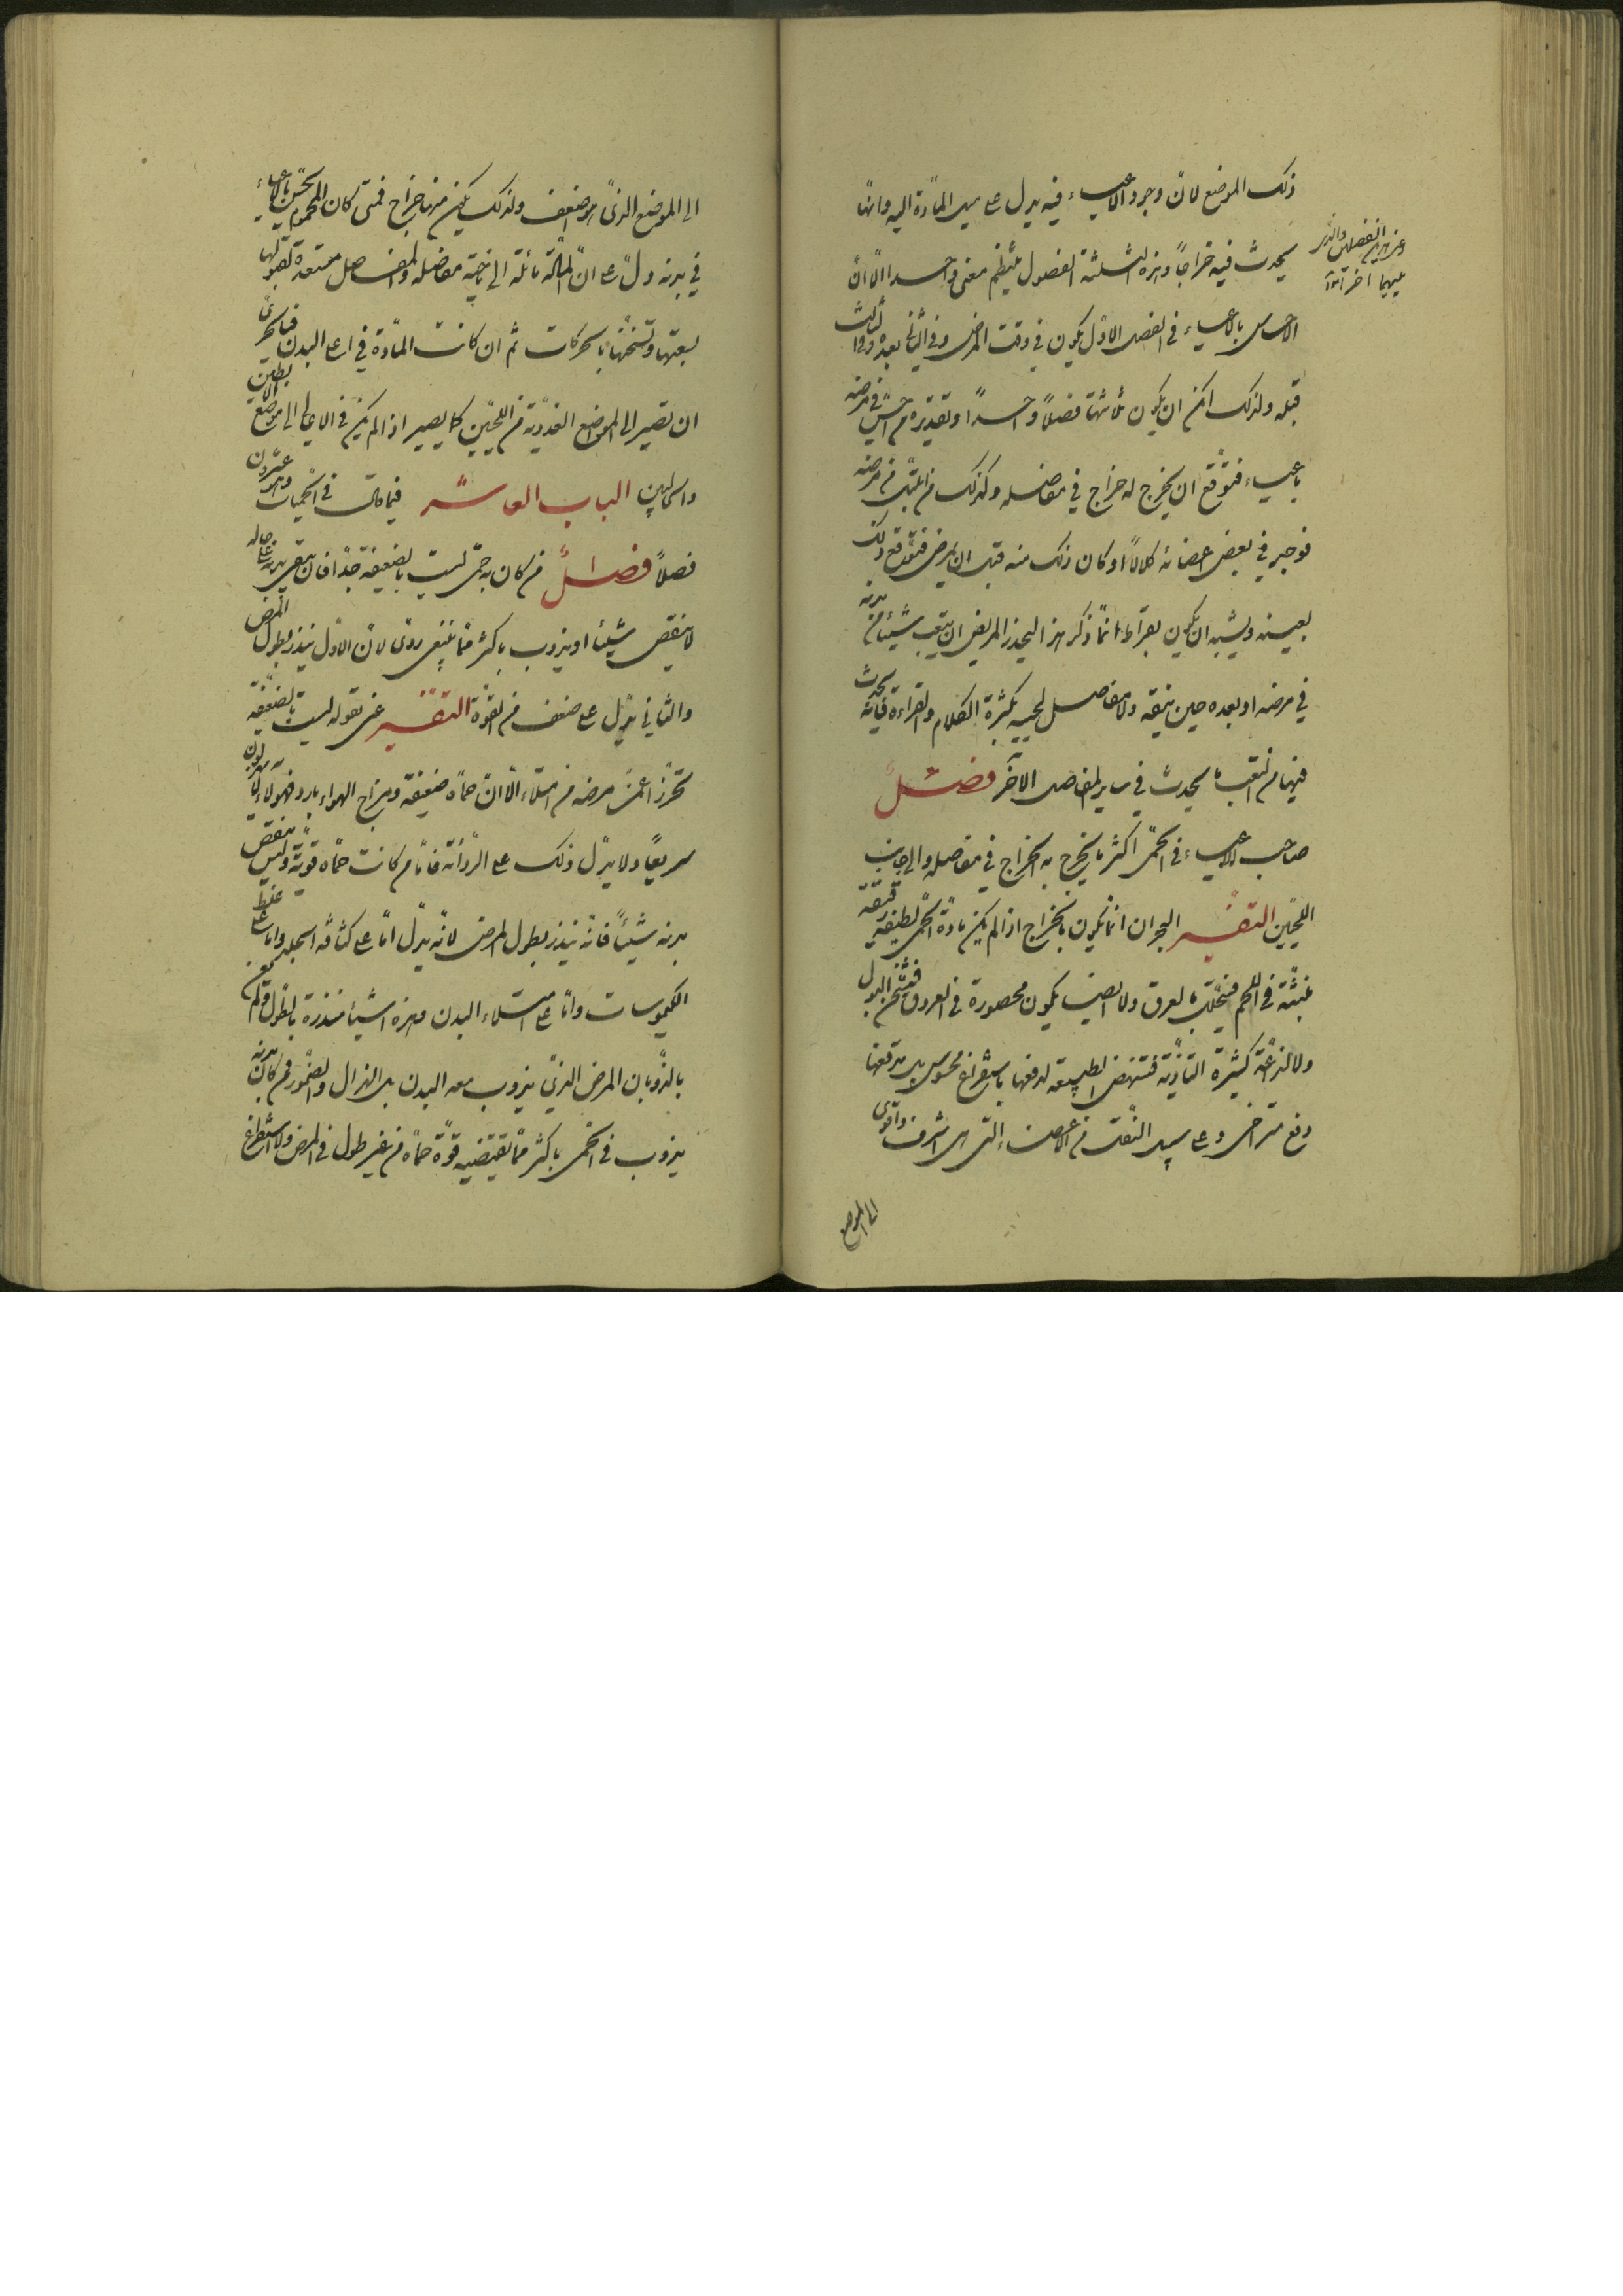 ذلك الموضع لانّ وجود الاعياء فيه يدل على ميل المادّة اليه وانها
يحدث فيه خراجاً وهذه الثلثة الفصول ينتظم معنى واحد الّا انّ
الاحساس بالاعياء في الفصل الاوّل يكون في وقت المرض وفي الثاني بعده وفي الثالث
قبله ولذلك امكن ان يكون ثلثتها فصلاً واحداً وتقديره من احسّ في مرضه
باعياء فتوقّع ان يخرج له خراج في مفاصله وكذلك من انتبه من مرضه
فوجد في بعض اعضائه كلالاً او كان ذلك منه قبل ان يمرض فتوقّع ذلك
بعينه ويشبه ان يكون بقراط انّما ذكر هذا ليحذر المريض ان يتعب شيئاً من بدنه
في مرضه او بعده حين ينقه ولا مفاصل لحييه بكثرة الكلام والقراءة فانه يحدث
فيها من التعب ما يحدث في ساير المفاصل الاخر فصل
صاحب الاعياء في الحمّى اكثر ما يخرج به الخراج في مفاصله والى جانب
اللحيين التفسير البحران انما يكون بالخراج اذا لم يكن مادّة الحمّى لطيفة رقيقة
منبثّة في اللحم فيتحلّل بالعرق ولا ايضا يكون محصورة في العروق فتستفرغ بالبول
ولا لذّاعة كثيرة التأذية فتنهض الطبيعة لدفعها باستفراغ محسوس بل يدفعها
دفع متراخى وعلى سبيل النقلة من الاعضاء التى هى اشرف واقوى
الى الموضع
وعن هذين الفصلين والذى
يليهما اخر اتوا
الى الموضع الذى هو اضعف ولذلك يكون منها خراج فمتى كان المحموم يحسّ بالاعياء
في بدنه دلّ على انّ المادّة مائلة الى ناحية مفاصله والمفاصل مستعدة لقبولها
لسعتها وتسخّنها بالحركات ثم ان كانت المادّة في اعلى البدن فبالحرىّ
ان تصير الى المواضع الغدديّة من اللحيين كما يصير اذا لم يكن في الاعالى الى مواضع الابطين
والحالبين الباب العاشر فيما قال في الحميات وهو عشرون
فصلاً فصل من كان به حمّى ليست بالضعيفة جدّاً فان يبقى بدنه على حاله
لا ينقص شيئا او يذوب باكثر مما ينبغى ردى لانّ الاوّل ينذر بطول المرض
والثانى يدلّ على ضعف من القوّة التفسير عنى بقوله ليست بالضعيفة
تحرّزاً عمّن مرضه من امتلاء الّا انّ حمّاه ضعيفة ومزاج الهواء بارد فهؤلاء لا يهزلون
سريعًا ولا يدلّ ذلك على الرداءة فامّا من كانت حمّاه قويّة وليس ينقص
بدنه شيئاً فانّه ينذر بطول المرض لانّه يدلّ امّا على كثافة الجلد وامّا على غلظ
الكيموسات وامّا على امتلاء البدن وهذه اشياء منذرة بالطول ولم يعن
بالذوبان المرض الذى يذوب معه البدن بل الهزال والضمور فمن كان بدنه
يذوب في الحمّى باكثر ممّا تقتضيه قوّة حمّاه من غير طول في المرض ولا استفراغ